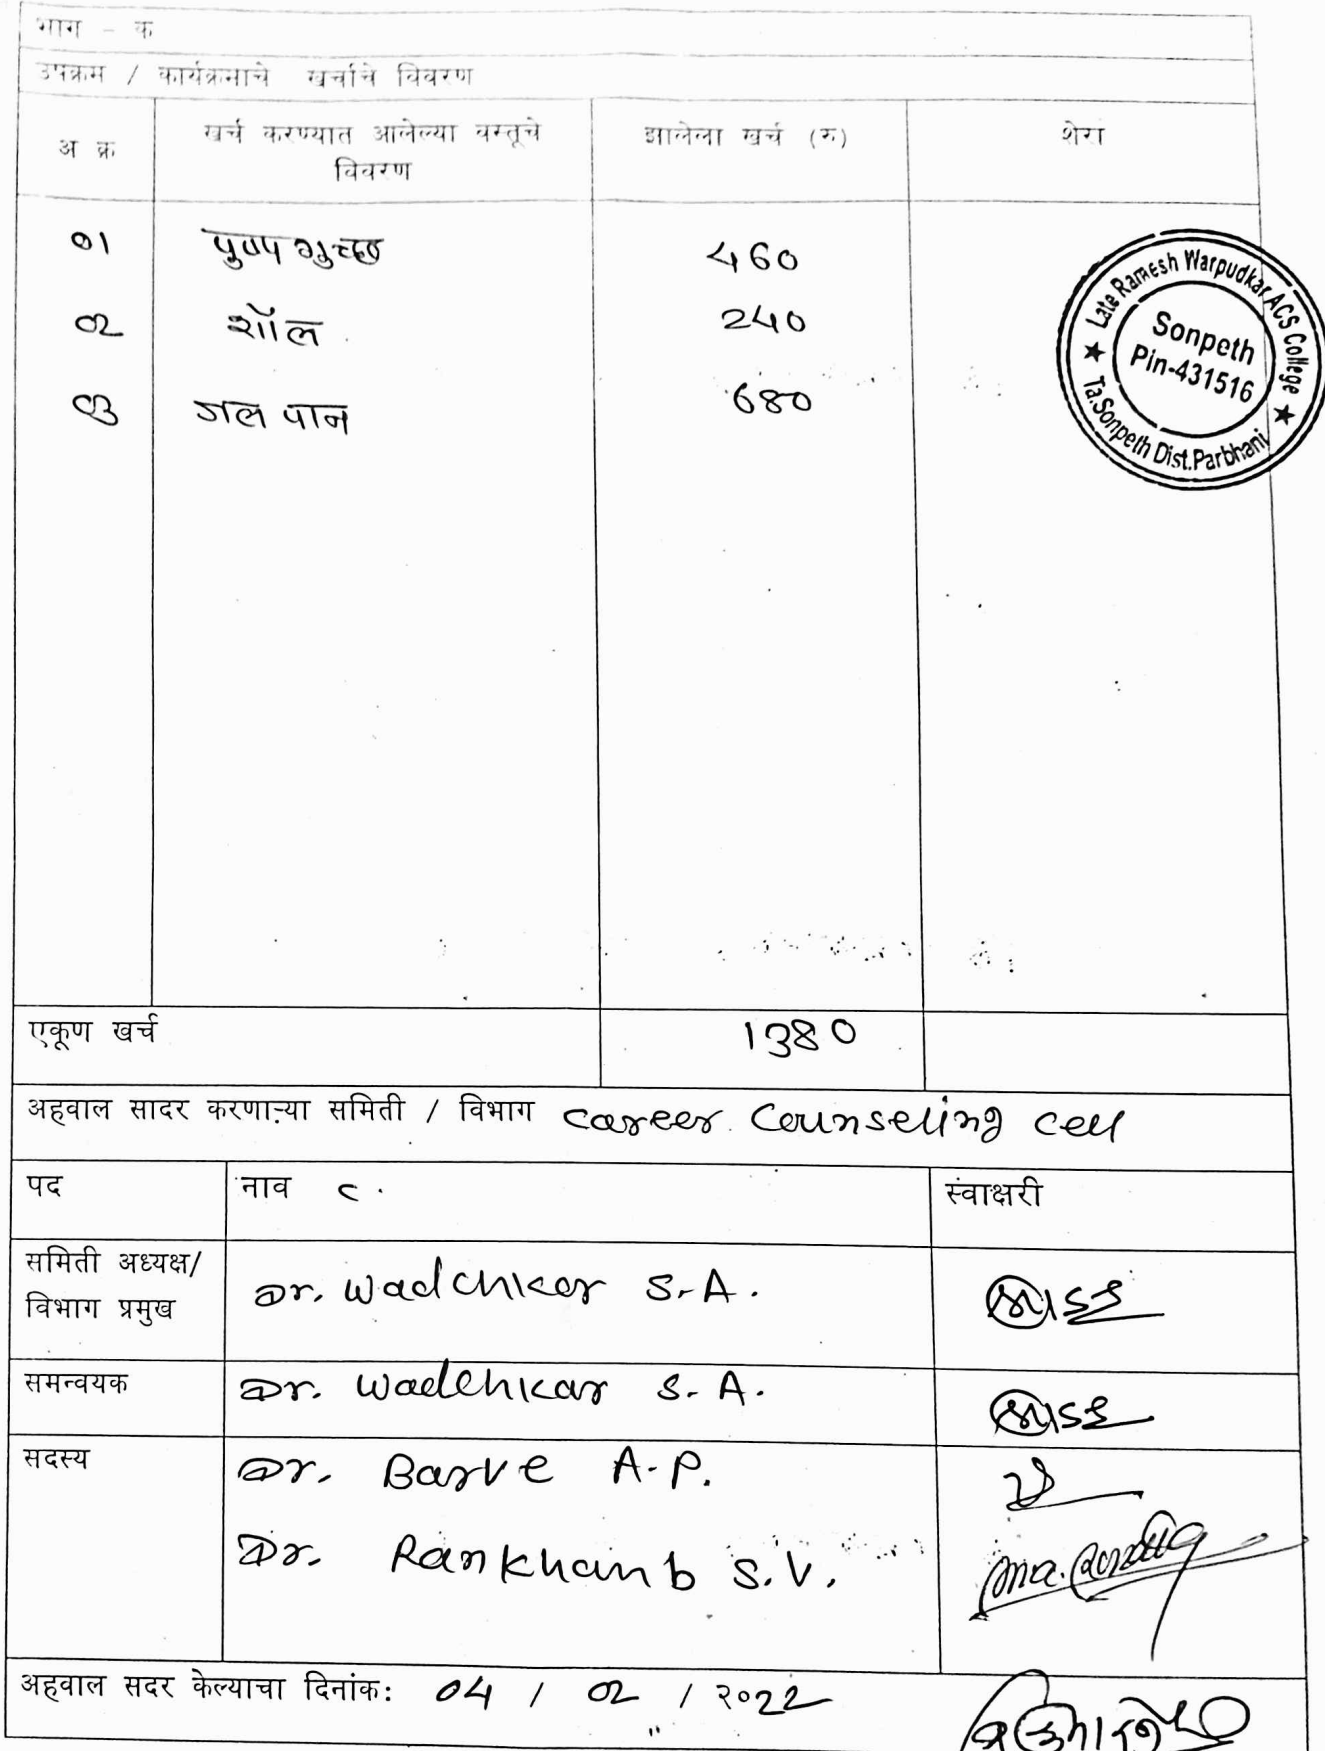 भाग - क
उपक्रम / कार्यक्रमाचे खर्चाचे विवरण
अ क्र
खर्च करण्यात आलेल्या वस्तूचे
विवरण
झालेला खर्च (रु)
शेरा
01 पुष्प गुच्छ 460
02 शॉल 240
03 जल पान 680
Late Ramesh Warpudkar ACS College
Sonpeth
Pin-431516
★ Ta.Sonpeth Dist.Parbhani ★
एकूण खर्च 1380
अहवाल सादर करणाऱ्या समिती / विभाग Career Counseling Cell
पद नाव स्वाक्षरी
समिती अध्यक्ष/
विभाग प्रमुख
Dr. Wadchkar S.A.
समन्वयक Dr. Wadchkar S.A.
सदस्य Dr. Barve A.P.
Dr. Rankhamb S.V.
अहवाल सदर केल्याचा दिनांक: 04 / 02 / २०22